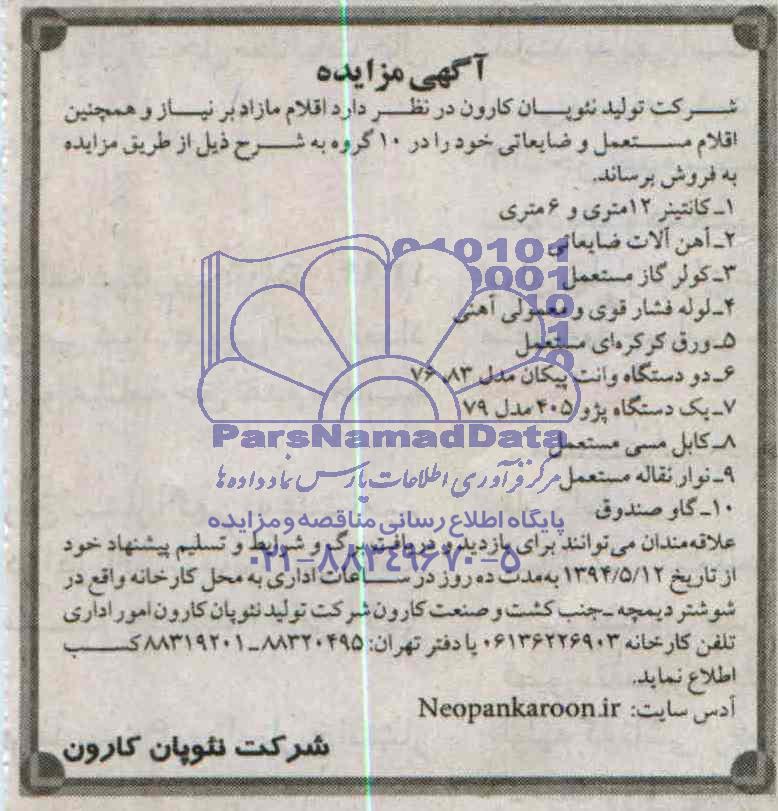 آگهی مزایده
شرکت تولید نئوپان کارون در نظر دارد اقلام مازاد بر نیاز و همچنین
اقلام مستعمل و ضایعاتی خود را در ۱۰ گروه به شرح ذیل از طریق مزایده
به فروش برساند.
۱ـ کانتینر ۱۲متری و ۶متری
۲ـ آهن آلات ضایعاتی
۳ـ کولر گاز مستعمل
۴ـ لوله فشار قوی و معمولی آهنی
۵ـ ورق کرکره‌ای مستعمل
۶ـ دو دستگاه وانت پیکان مدل ۸۳، ۷۶
۷ـ یک دستگاه پژو ۴۰۵ مدل ۷۹
۸ـ کابل مسی مستعمل
۹ـ نوار نقاله مستعمل
۱۰ـ گاو صندوق
علاقه‌مندان می‌توانند برای بازدید و دریافت برگ و شرایط و تسلیم پیشنهاد خود
از تاریخ ۱۳۹۴/۵/۱۲ به‌مدت ده روز در ساعات اداری به محل کارخانه واقع در
شوشتر دیمچه ـ جنب کشت و صنعت کارون شرکت تولید نئوپان کارون امور اداری
تلفن کارخانه ۰۶۱۳۶۲۲۶۹۰۳ یا دفتر تهران: ۸۸۳۲۰۴۹۵ ـ ۸۸۳۱۹۲۰۱ کسب
اطلاع نماید.
آدس سایت: Neopankaroon.ir
شرکت نئوپان کارون
ParsNamadData
مرکز فرآوری اطلاعات پارس نماد داده ها
پایگاه اطلاع رسانی مناقصه و مزایده
۰۲۱-۸۸۳۴۹۶۷۰-۵